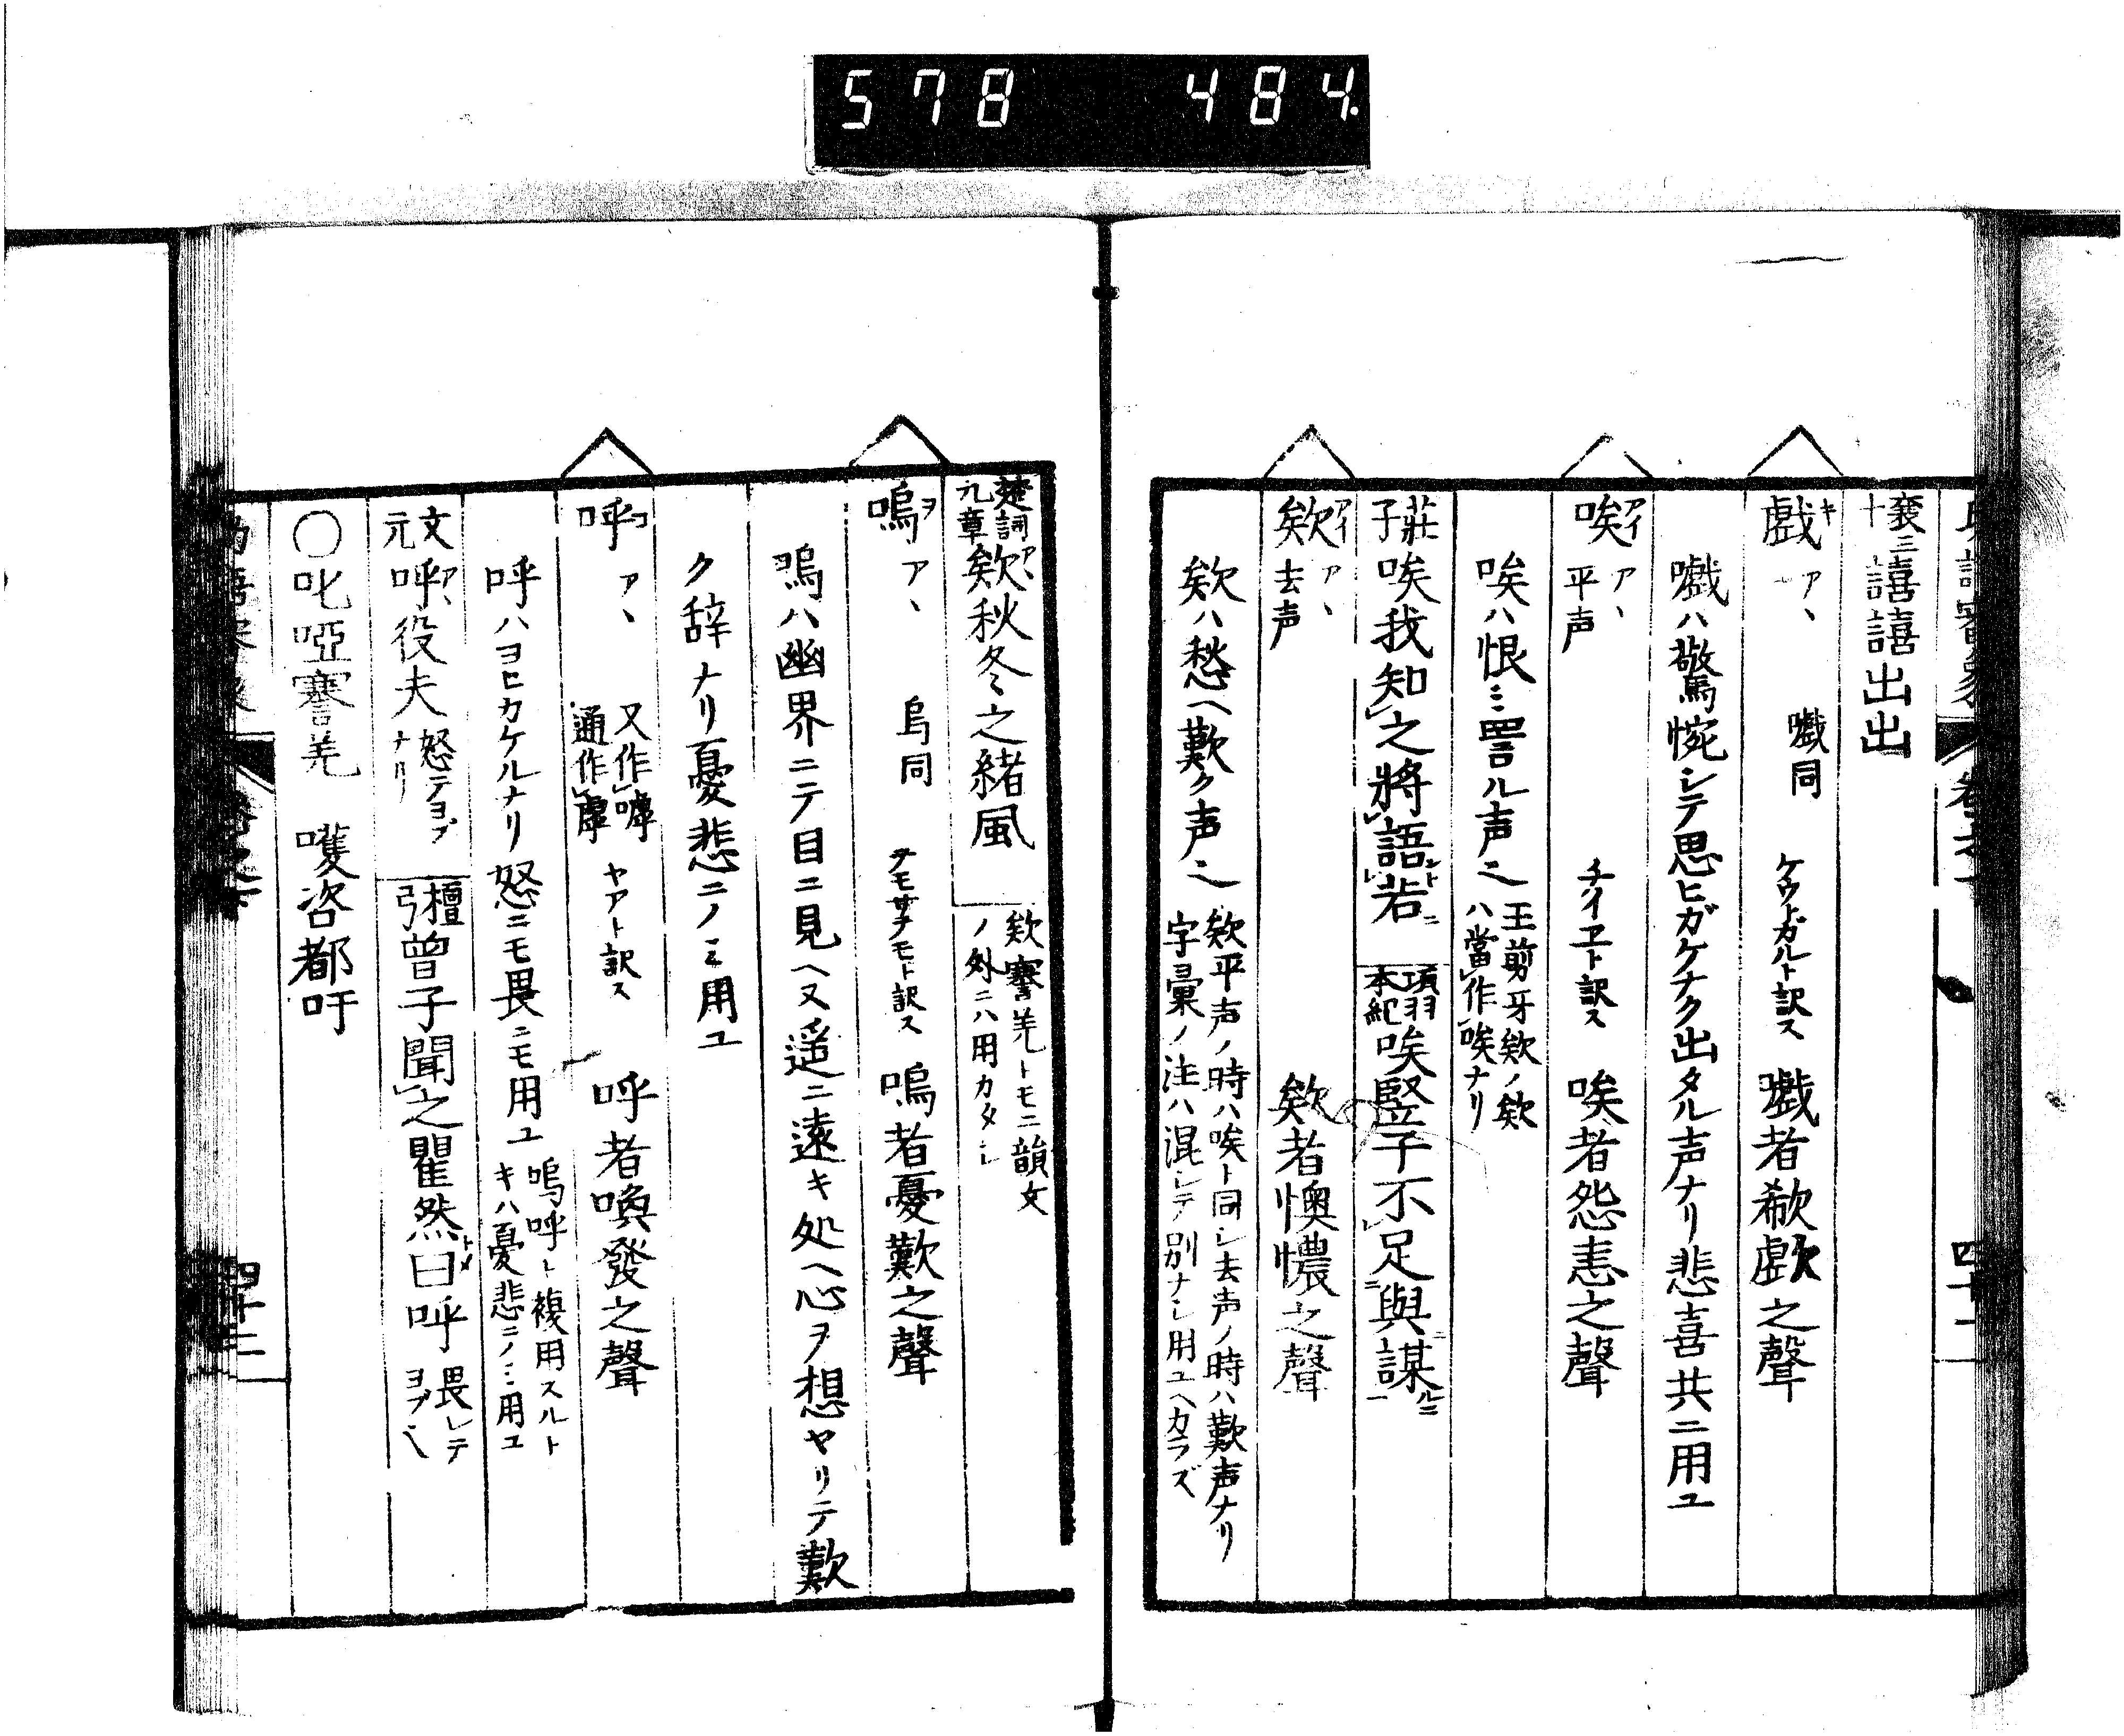 578 484.
襄三十 譆譆出出
戲キ アヽ 嚱同 ケウトガルト訳ス 嚱者欷歔之聲
嚱ハ驚惋シテ思ヒガケナク出タル声ナリ悲喜共ニ用ユ
唉アイ アヽ 平声 チイヱト訳ス 唉者怨恚之聲
唉ハ恨ミ詈ル声也 王剪牙欸ノ欸ハ當作唉ナリ
莊子 唉我知之將語若 項羽本紀 唉竪子不足與謀
欸アイ アヽ 去声 欸者懊憹之聲
欸ハ愁ヘ歎ク声也 欸平声ノ時ハ唉ト同シ去声ノ時ハ歎声ナリ字彙ノ注ハ混シテ別ナシ用ユヘカラズ
楚詞九章 欸秋冬之緒風 欸謇羌トモニ韻文ノ外ニハ用カタシ
嗚ヲ アヽ 烏同 サモサモト訳ス 嗚者憂歎之聲
嗚ハ幽界ニテ目ニ見ヘヌ遥ニ遠キ処ヘ心ヲ想ヤリテ歎
ク辞ナリ憂悲ニノミ用ユ
呼コ アヽ 又作嘑通作虖 ヤアト訳ス 呼者喚發之聲
呼ハヨヒカケルナリ怒ニモ畏ニモ用ユ 嗚呼ト複用スルトキハ憂悲ニノミ用ユ
文元 呼役夫 怒テヨブナリ 檀弓 曾子聞之瞿然曰呼 畏レテヨブ也
〇叱啞謇羌 嚄咨都吁
四十二